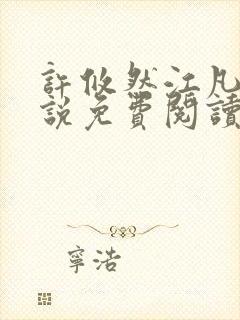 許攸然江凡
說免費閱讀
寧浩